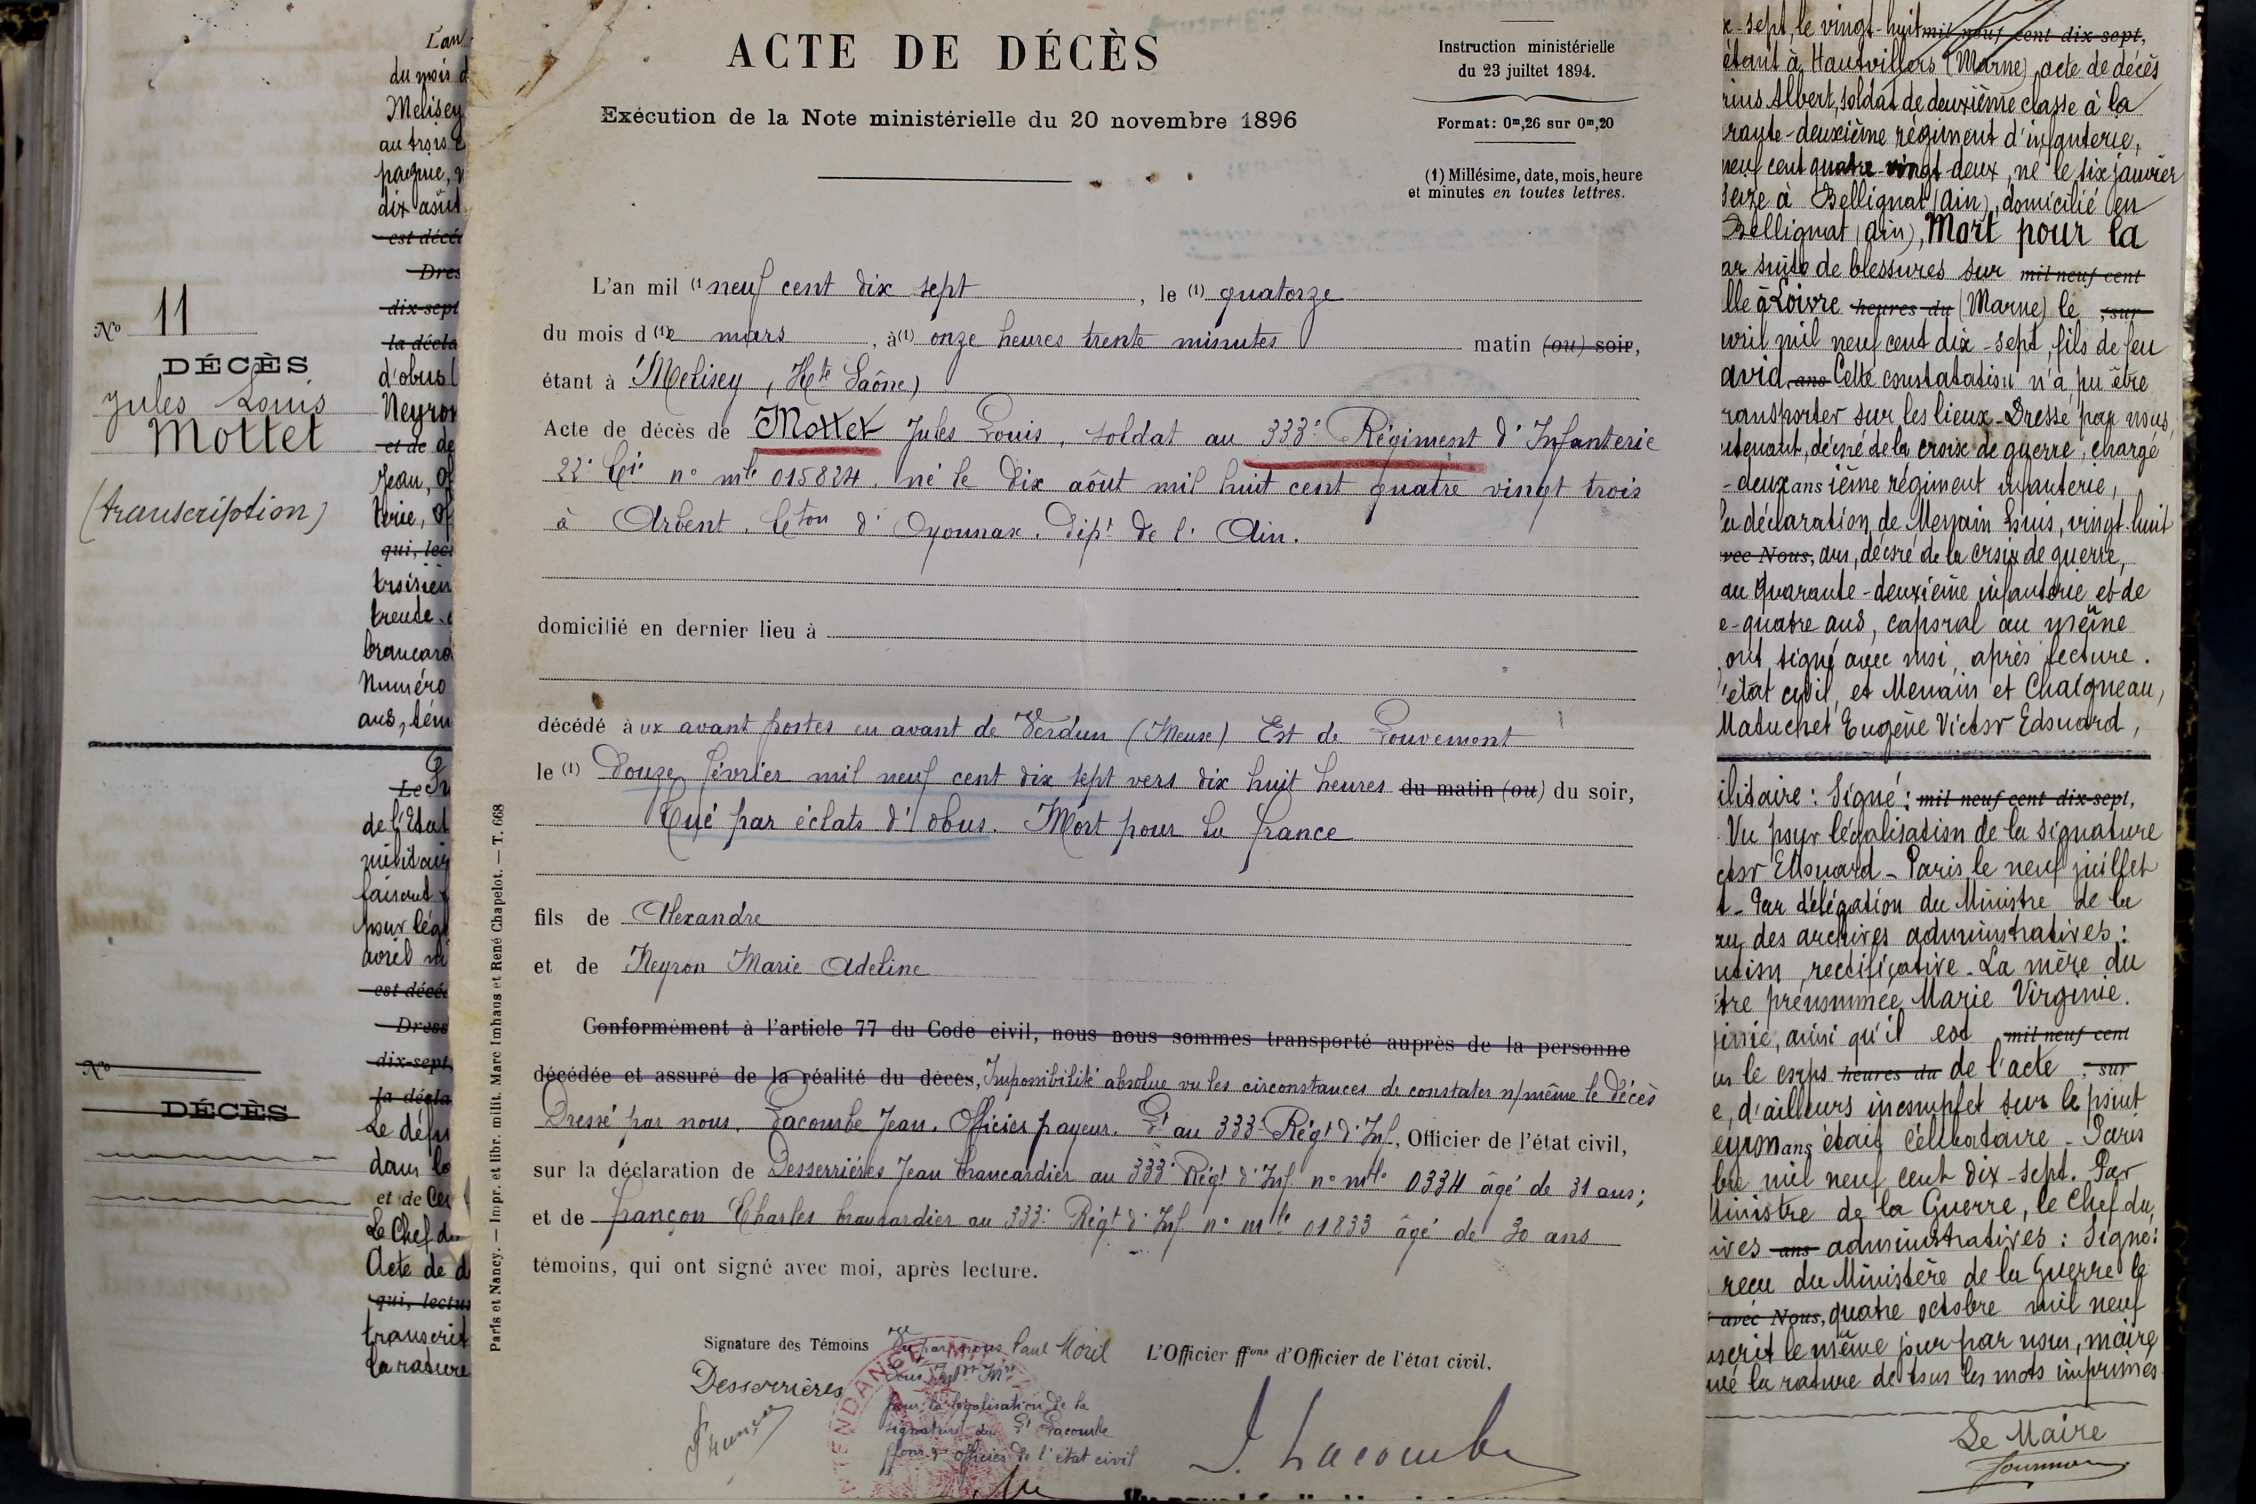 L'an
du mois d
Melisey
au trois
pagne, v
dix août
est décé
Dres
dix-sept
la décla
d'obus (
Neyron
et de de
Jean, Of
terie, Of
qui, lec
troisièm
trente-
brancard
Numéro
ans, tém
Nº 11
DÉCÈS
Jules Louis
Mottet
(transcription)
Le
de l'Etat
militair
faisant f
pour léga
avril m
est décé
Dress
dix-sept,
la décla
Nº
DÉCÈS
Le défu
dans le
et de Ces
Le Chef du
Acte de d
qui, lectu
transcrit
la rature
ACTE DE DÉCÈS
Exécution de la Note ministérielle du 20 novembre 1896
Instruction ministérielle
du 23 juiltet 1894.
Format: 0ᵐ,26 sur 0ᵐ,20
(1) Millésime, date, mois, heure
et minutes en toutes lettres.
L'an mil (1 neuf cent dix sept, le (1) quatorze
du mois d (1)e mars, à (1) onze heures trente minutes matin (ou) soir,
étant à Melisey, (Hte Saône)
Acte de décès de Mottet Jules Louis, soldat au 333e Régiment d'Infanterie
22e Cie nº mle 015824. né le dix août mil huit cent quatre vingt trois
à Arbent. Cton d'Oyonnax. Dépt de l'Ain.
domicilié en dernier lieu à
décédé à ux avant postes en avant de Verdun (Meuse) Est de Louvemont
le (1) douze février mil neuf cent dix sept vers dix huit heures du matin (ou) du soir,
Tué par éclats d'obus. Mort pour la france
fils de Alexandre
et de Neyron Marie Adeline
Conformément à l'article 77 du Code civil, nous nous sommes transporté auprès de la personne
décédée et assuré de la réalité du décès, Impossibilité absolue vu les circonstances de constater n/même le décès
Dressé par nous, Lacombe Jean, Officier payeur. Lt au 333e Régt d'Inf, Officier de l'état civil,
sur la déclaration de Desserrières Jean brancardier au 333e Régt d'Inf nº mle 0334 âgé de 31 ans;
et de françon Charles brancardier au 333e Régt d'Inf nº mle 01833 âgé de 30 ans
témoins, qui ont signé avec moi, après lecture.
Signature des Témoins
Desserrières
Vu par nous Paul Moril
pour la légalisation de la
signature du Lt Lacombe
ffons d'officier de l'état civil
L'Officier ffons d'Officier de l'état civil.
J. Lacombe
Paris et Nancy. — Impr. et libr. milit. Marc Imhaus et René Chapelot. — T. 668
x-sept, le vingt-huit mil neuf cent dix-sept,
étant à Hautvillers (Marne) acte de décès
rius Albert, soldat de deuxième classe à la
rante-deuxième régiment d'infanterie,
neuf cent quatre-vingt-deux, né le six janvier
seize à Bellignat (Ain), domicilié en
Bellignat (Ain), Mort pour la
ar suite de blessures sur mil neuf cent
lle à Loivre heures du (Marne) le , sur
vril mil neuf cent dix-sept, fils de feu
avid, ans Cette constatation n'a pu être
ransporter sur les lieux - Dressé par nous,
utenant, décoré de la croix de guerre, chargé
-deux ans ième régiment infanterie,
la déclaration de Menain Louis, vingt-huit
vec Nous, ans, décoré de la croix de guerre,
au quarante-deuxième infanterie et de
e-quatre ans, caporal au même
ont signé avec moi, après lecture.
l'état civil, et Menain et Chaigneau,
Matuchet Eugène Victor Edouard,
ilitaire: Signé: mil neuf cent dix-sept,
Vu pour légalisation de la signature
ctor Edouard - Paris le neuf juillet
t - Par délégation du Ministre de la
au des archives administratives:
ution rectificative - La mère du
tre prénommée Marie Virginie.
ginie, ainsi qu'il est mil neuf cent
ns le corps heures du de l'acte , sur
e, d'ailleurs incomplet sur le point
ans était célibataire - Paris
bre mil neuf cent dix-sept. Par
Ministre de la Guerre, le Chef du
ives ans administratives: Signé:
reçu du Ministère de la Guerre le
avec Nous, quatre octobre mil neuf
nscrit le même jour par nous, maire
vé la rature de tous les mots imprimés
Le Maire